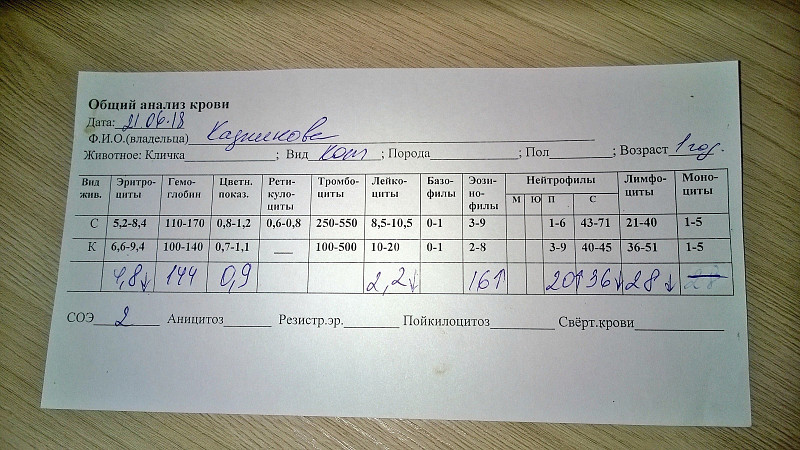 Общий анализ крови
Дата: 21.06.18
Ф.И.О.(владельца) Казликова
Животное: Кличка ; Вид Кот ; Порода ; Пол ; Возраст 1 год.
Вид жив. Эритро-циты Гемо-глобин Цветн. показ. Рети-куло-циты Тромбо-циты Лейко-циты Базо-филы Эози-но-филы Нейтрофилы М Ю П С Лимфо-циты Моно-циты
С 5,2-8,4 110-170 0,8-1,2 0,6-0,8 250-550 8,5-10,5 0-1 3-9 1-6 43-71 21-40 1-5
К 6,6-9,4 100-140 0,7-1,1 — 100-500 10-20 0-1 2-8 3-9 40-45 36-51 1-5
4,8↓ 144 0,9 2,2↓ 16↑ 20↑ 36↓ 28↓
СОЭ 2 Аницитоз Резистр.эр. Пойкилоцитоз Свёрт.крови